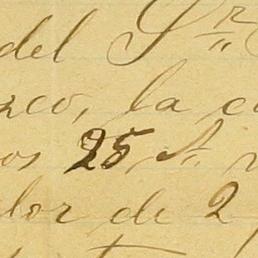 del Sr
zco, la c
os 25, A.
lor de 2